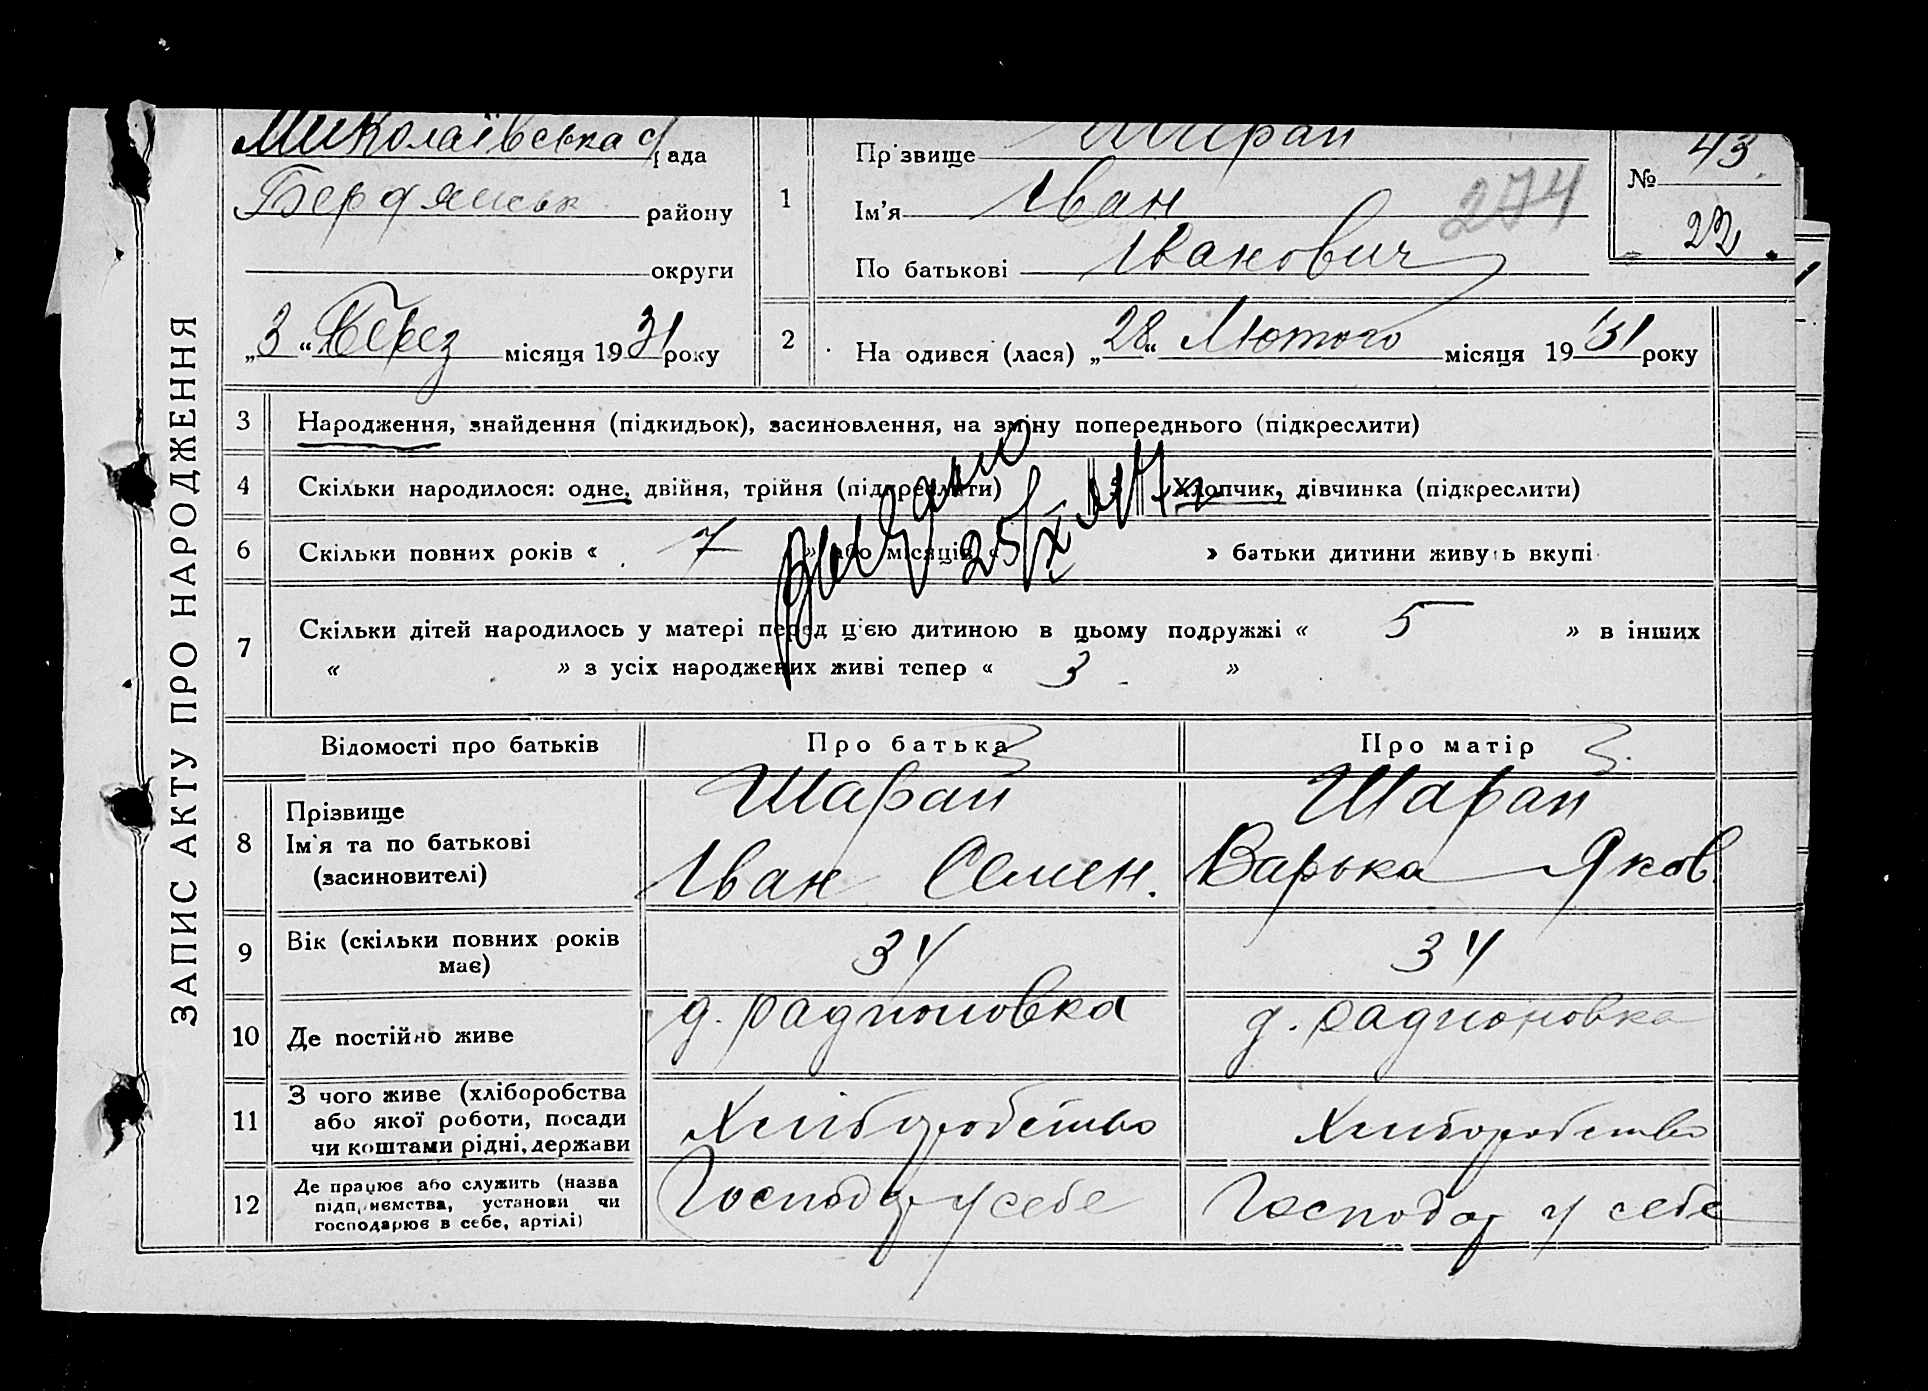 ЗАПИС АКТУ ПРО НАРОДЖЕННЯ
Миколаївська рада
Бердянськ району
округи
„3“ Берез місяця 1931 року
1
Прізвище Шарап
Ім'я Іван
По батькові Іванович
274
№ 43
22
2
Народився (лася) „28“ Лютого місяця 1931 року
3 Народження, знайдення (підкидьок), засиновлення, на зміну попереднього (підкреслити)
4 Скільки народилося: одне, двійня, трійня (підкреслити)
Хлопчик, дівчинка (підкреслити)
6 Скільки повних років « 7 » або місяців « » батьки дитини живуть вкупі
Видано
25/X
7 Скільки дітей народилось у матері перед цією дитиною в цьому подружжі « 5 » в інших
« » з усіх народжених живі тепер « 3 »
Відомості про батьків
Про батька
Про матір
8 Прізвище
Ім'я та по батькові
(засиновителі)
Шарап
Іван Семен.
Шарап
Варька Яков.
9 Вік (скільки повних років
має)
34
34
10 Де постійно живе
д. радионовка
д. радионовка
11 З чого живе (хліборобства
або якої роботи, посади
чи коштами рідні, держави
Хліборобство
Хліборобство
12 Де працює або служить (назва
підприємства, установи чи
господарює в себе, артілі)
Господар у себе
Господар у себе